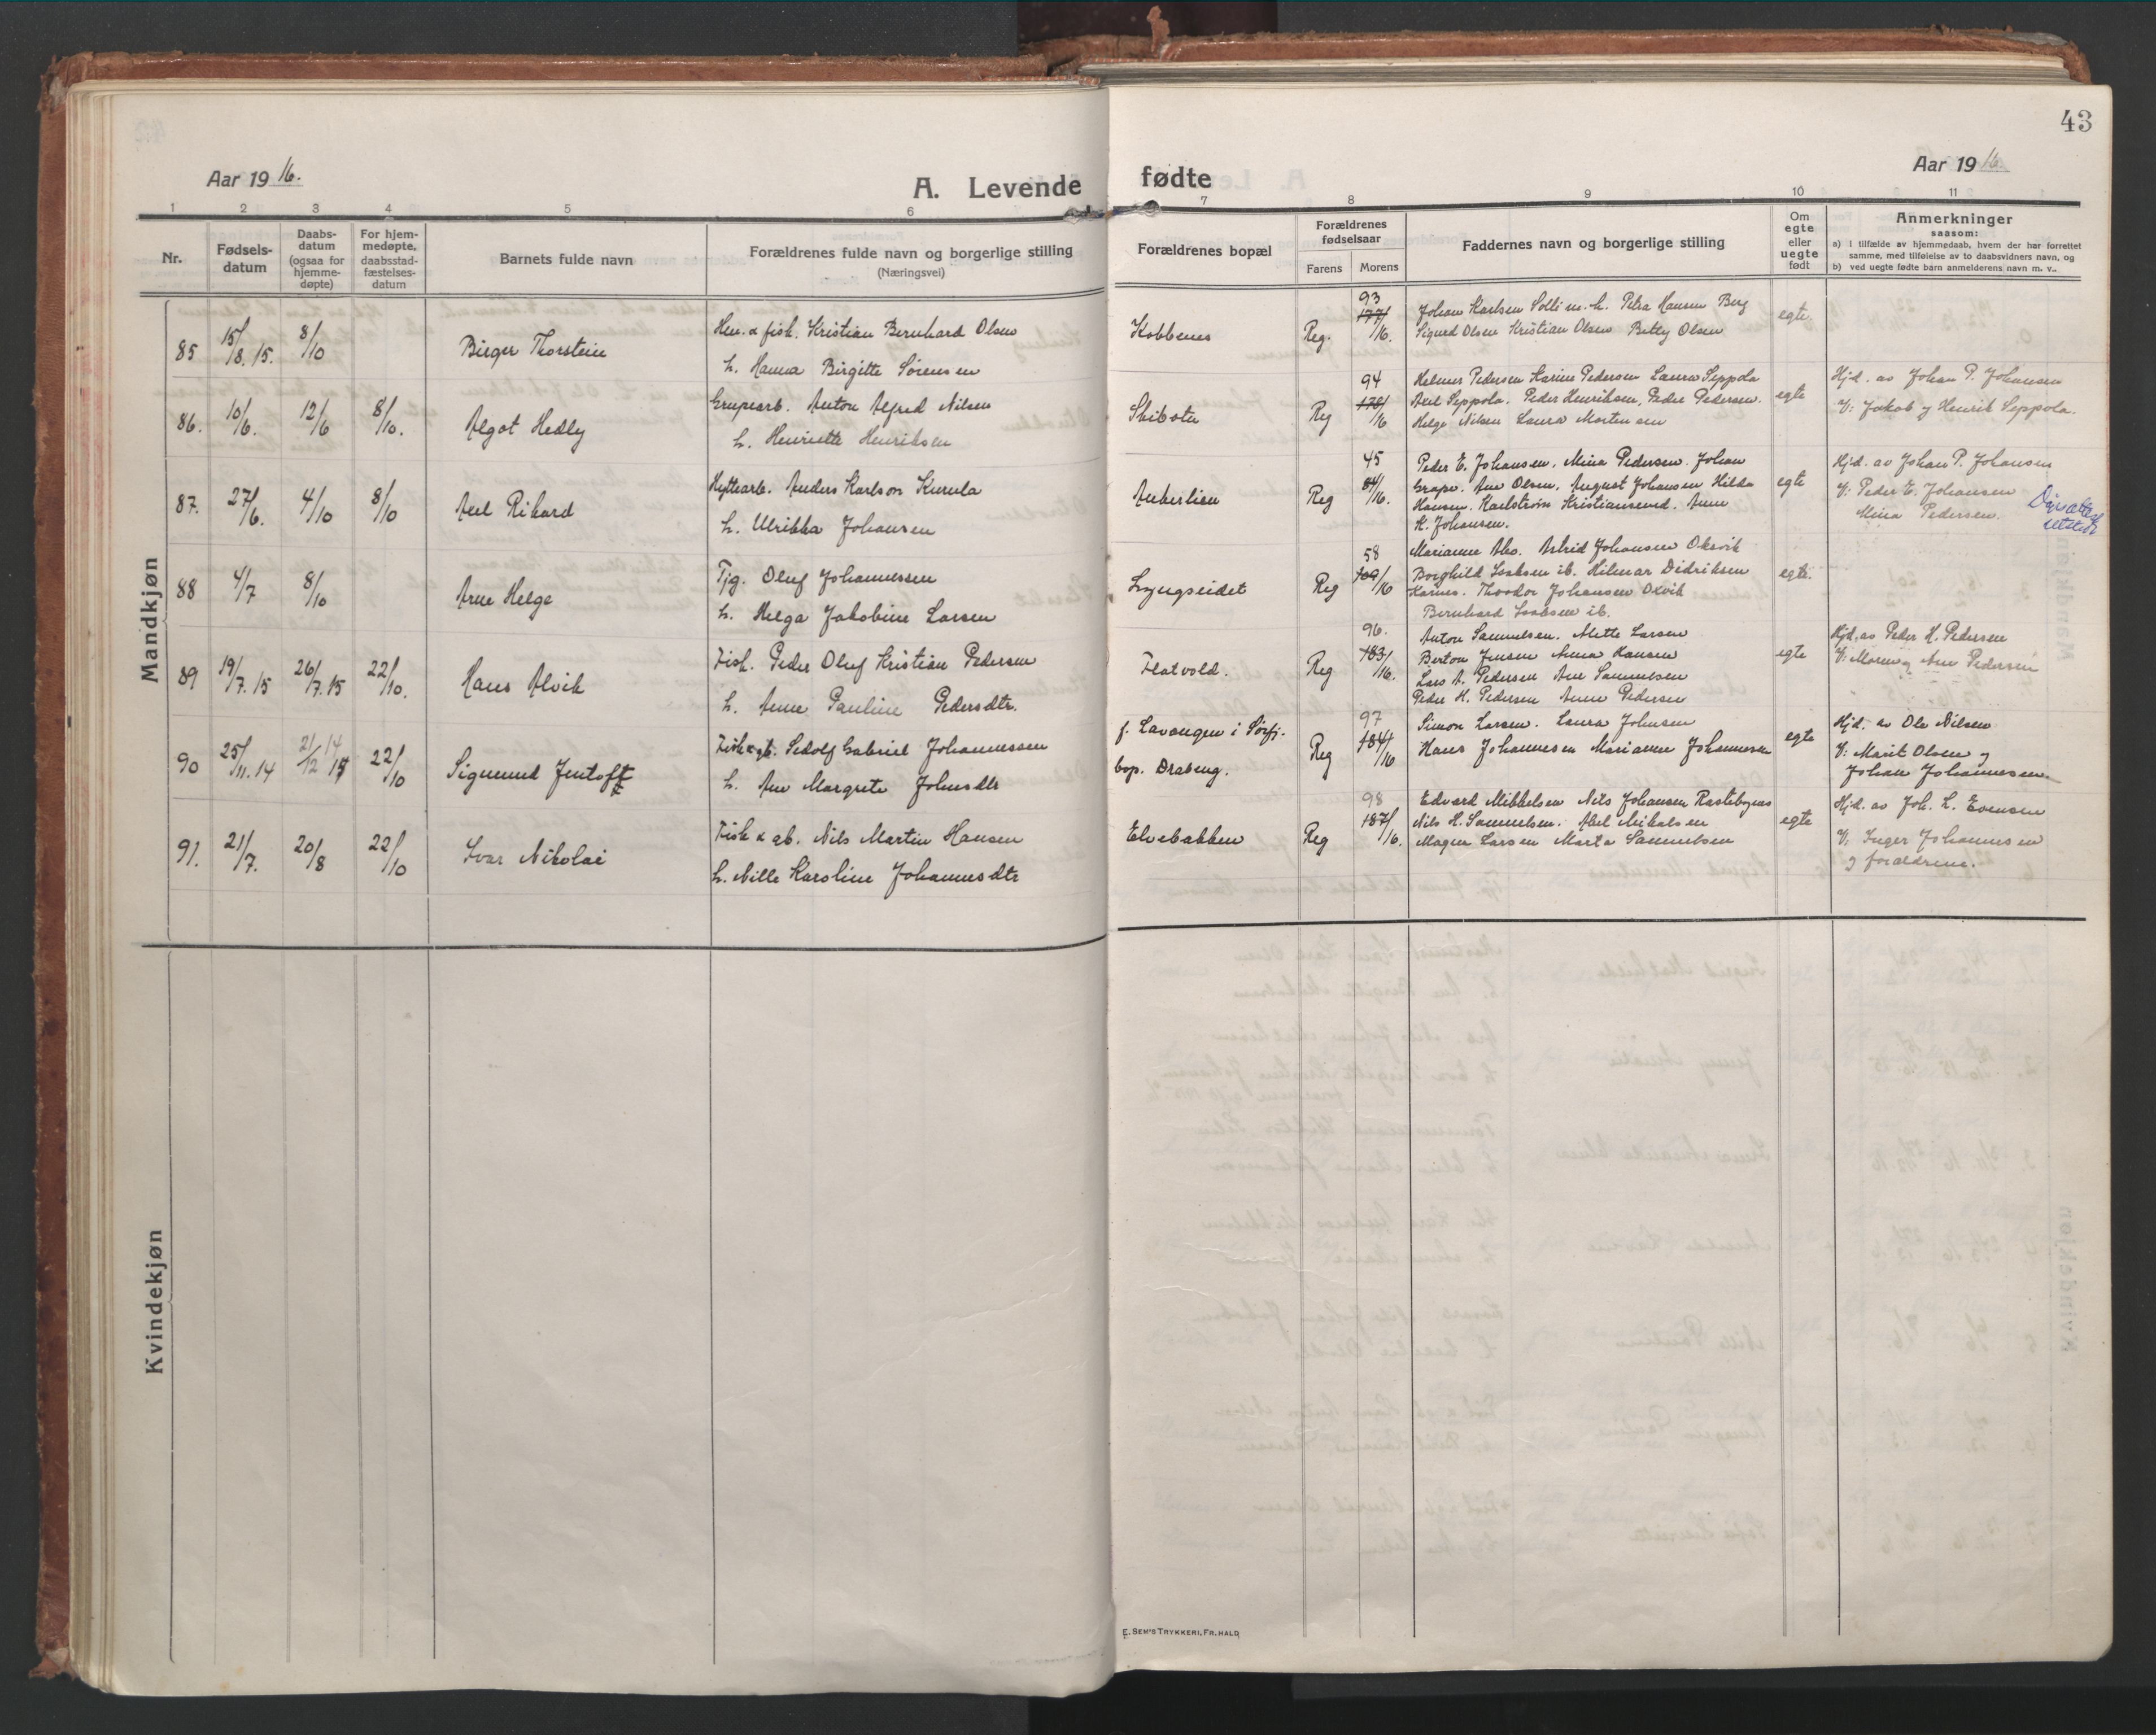 43
Aar 1916.
Aar 1916
A. Levende fødte
1 2 3 4 5 6 7 8 9 10 11
Nr.
Fødsels-
datum
Daabs-
datum
(ogsaa for
hjemme-
døpte)
For hjem-
medøpte,
daabsstad-
fæstelses-
datum
Barnets fulde navn
Forældrenes fulde navn og borgerlige stilling
(Næringsvei)
Forældrenes bopæl
Forældrenes
fødselsaar
Farens Morens
Faddernes navn og borgerlige stilling
Om
egte
eller
uegte
født
Anmerkninger
saasom:
a) i tilfælde av hjemmedaab, hvem der har forrettet
samme, med tilføielse av to daabsvidners navn, og
b) ved uegte fødte barn anmelderens navn m. v..
Mandkjøn
85 15/8.15. 8/10 Birger Thorstein
fisk. Kristian Bernhard Olsen
h. Hanna Birgitte Sørensen
Kobbenes Reg. 93
177/16.
Johan Karlsen Solli m. h. Petra Hansen Berg
Sigurd Olsen Kristian Olsen Betty Olsen
egte.
86. 10/6. 12/6 8/10. Algot Hedly
Grupearb. Anton Alfred Nilsen
h. Henriette Henriksen
Skibotn Reg 94
178/16
Helmer Pedersen Karine Pedersen Laura Seppola
Axel Seppola. Peder Henriksen, Peder Pedersen.
Helge Nilsen Laura Mortensen
egte
Hjd. av Johan P. Johansen
V: Jakob og Henrik Seppola.
87. 27/6. 4/10 8/10 Axel Rikard
Hyttearb. Anders Karlson Kurula
h. Ulrikka Johansen
Ankerlien Reg 45
84/16.
Peder E. Johansen, Mina Pedersen. Johan
Grape. Ane Olsen, August Johansen Hilda
Hansen. Karlstrøm Kristiansund. Anne
K. Johansen.
egte
Hjd. av Johan P. Johansen
V: Peder E. Johansen
Mina Pedersen.
utstedt
88 4/7 8/10 Arne Helge
Tjg. Oluf Johannessen
h. Helga Jakobine Larsen
Lyngseidet Reg 58
109/16
Marianne Astrid Johansen Oksvik
Borghild Isaksen ib. Hilmar Didriksen
Karnes. Theodor Johansen Oxvik
Bernhard Isaksen ib.
egte.
89 19/7.15 26/7.15 22/10. Hans Alvik
Fisk. Peder Oluf Kristian Pedersen
h. Anne Pauline Pedersdtr.
Flatvold. Reg 96.
183/16.
Anton Samuelsen. Mette Larsen
Berton Jensen Anna Hansen
Lars A. Pedersen Ane Samuelsen
Peder H. Pedersen Anne Pedersen
egte
Hjd. av Peder H. Pedersen
V: Moren og Ane Pedersen
90 25/11.14 21/12 14 22/10 Sigmund Jentoft
Fisk & gb. Sedolf Gabriel Johannessen
h. Ane Margrete Johnsdtr
f. Lavangen i Sørfj.
bop. Drabeng.
Reg 97
184/16
Simon Larsen. Laura Johnsen
Hans Johannesen Marianne Johannesen
egte
Hjd. av Ole Nilsen
V: Marit Olsen og
Johan Johannesen.
91. 21/7. 20/8 22/10 Ivar Nikolai
Fisk & gb. Nils Martin Hansen
h. Nille Karoline Johannesdtr
Elvebakken Reg 98
187/16.
Edvard Mikkelsen Nils Johansen Rastebynes
Nils H. Samuelsen. Abel Mikalsen
Magna Larsen Marta Samuelsen
egte
Hjd. av Joh. L. Evensen
V: Inger Johannesen
og forældrene.
Kvindekjøn
E. SEM'S TRYKKERI, FR.HALD